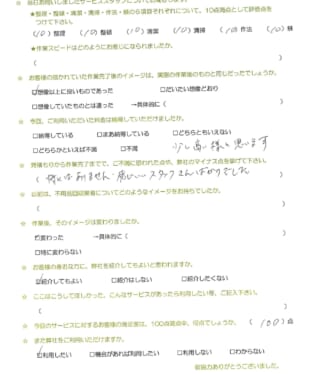 ☆ 当社お伺いしましたサービススタッフについてお尋ねします。
★整理・整頓・清潔・清掃・作法・躾の6項目それぞれについて、10点満点として評価点を
つけて下さい。
(10) 整理 (10) 整頓 (10) 清潔 (10) 清掃 (10) 作法 (10) 躾
★作業スピードはどのようにお感じになられましたか。
( )
☆ お客様の描かれていた作業完了後のイメージは、実際の作業後のものと同じだったでしょうか。
☑想像以上に良いものであった □だいたい想像どおり
□想像していたものとは違った →具体的に( )
☆ 今回、ご利用いただいた料金は納得していただけましたか。
□納得している □まあ納得している □どちらともいえない
□どちらかといえば不満 □不満 少し高い様に思います
☆ 見積もりから作業完了までで、ご不満に思われた点や、弊社のマイナス点を挙げて下さい。
( 特にはありません・ スタッフさんばかりでした )
☆ 以前は、不用品回収業者についてどのようなイメージをお持ちでしたか。
( )
☆ 作業後、そのイメージは変わりましたか。
☑変わった →具体的に( )
□特に変わらない
☆ お客様の身近な方に、弊社を紹介してもよいと思われますか。
☑紹介してもよい □紹介はしない □紹介したくない
☆ ここはこうしてほしかった、こんなサービスがあったら利用したい等、ご記入下さい。
( )
☆ 今日のサービスに対するお客様の満足度は、100点満点中、何点でしょうか。 ( 100 )点
☆ また弊社をご利用いただけますか。
☑利用したい □機会があれば利用したい □利用しない □わからない
ご協力ありがとうございました。